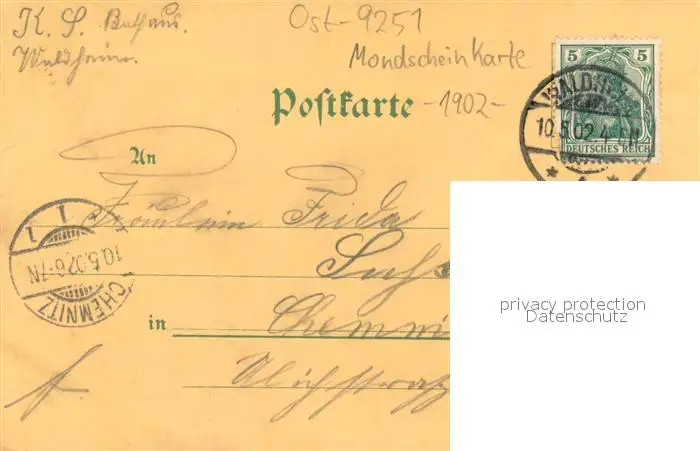 K. S.
Waldheim.
Ost-9251
Mondschein Karte
-1902-
Postkarte
5 5
DEUTSCHES REICH
WALDH
10.5.02.4-
An
Fräulein Frida
in Chemni
CHEMNITZ
10.5.02.6-7N
1
1
privacy protection
Datenschutz